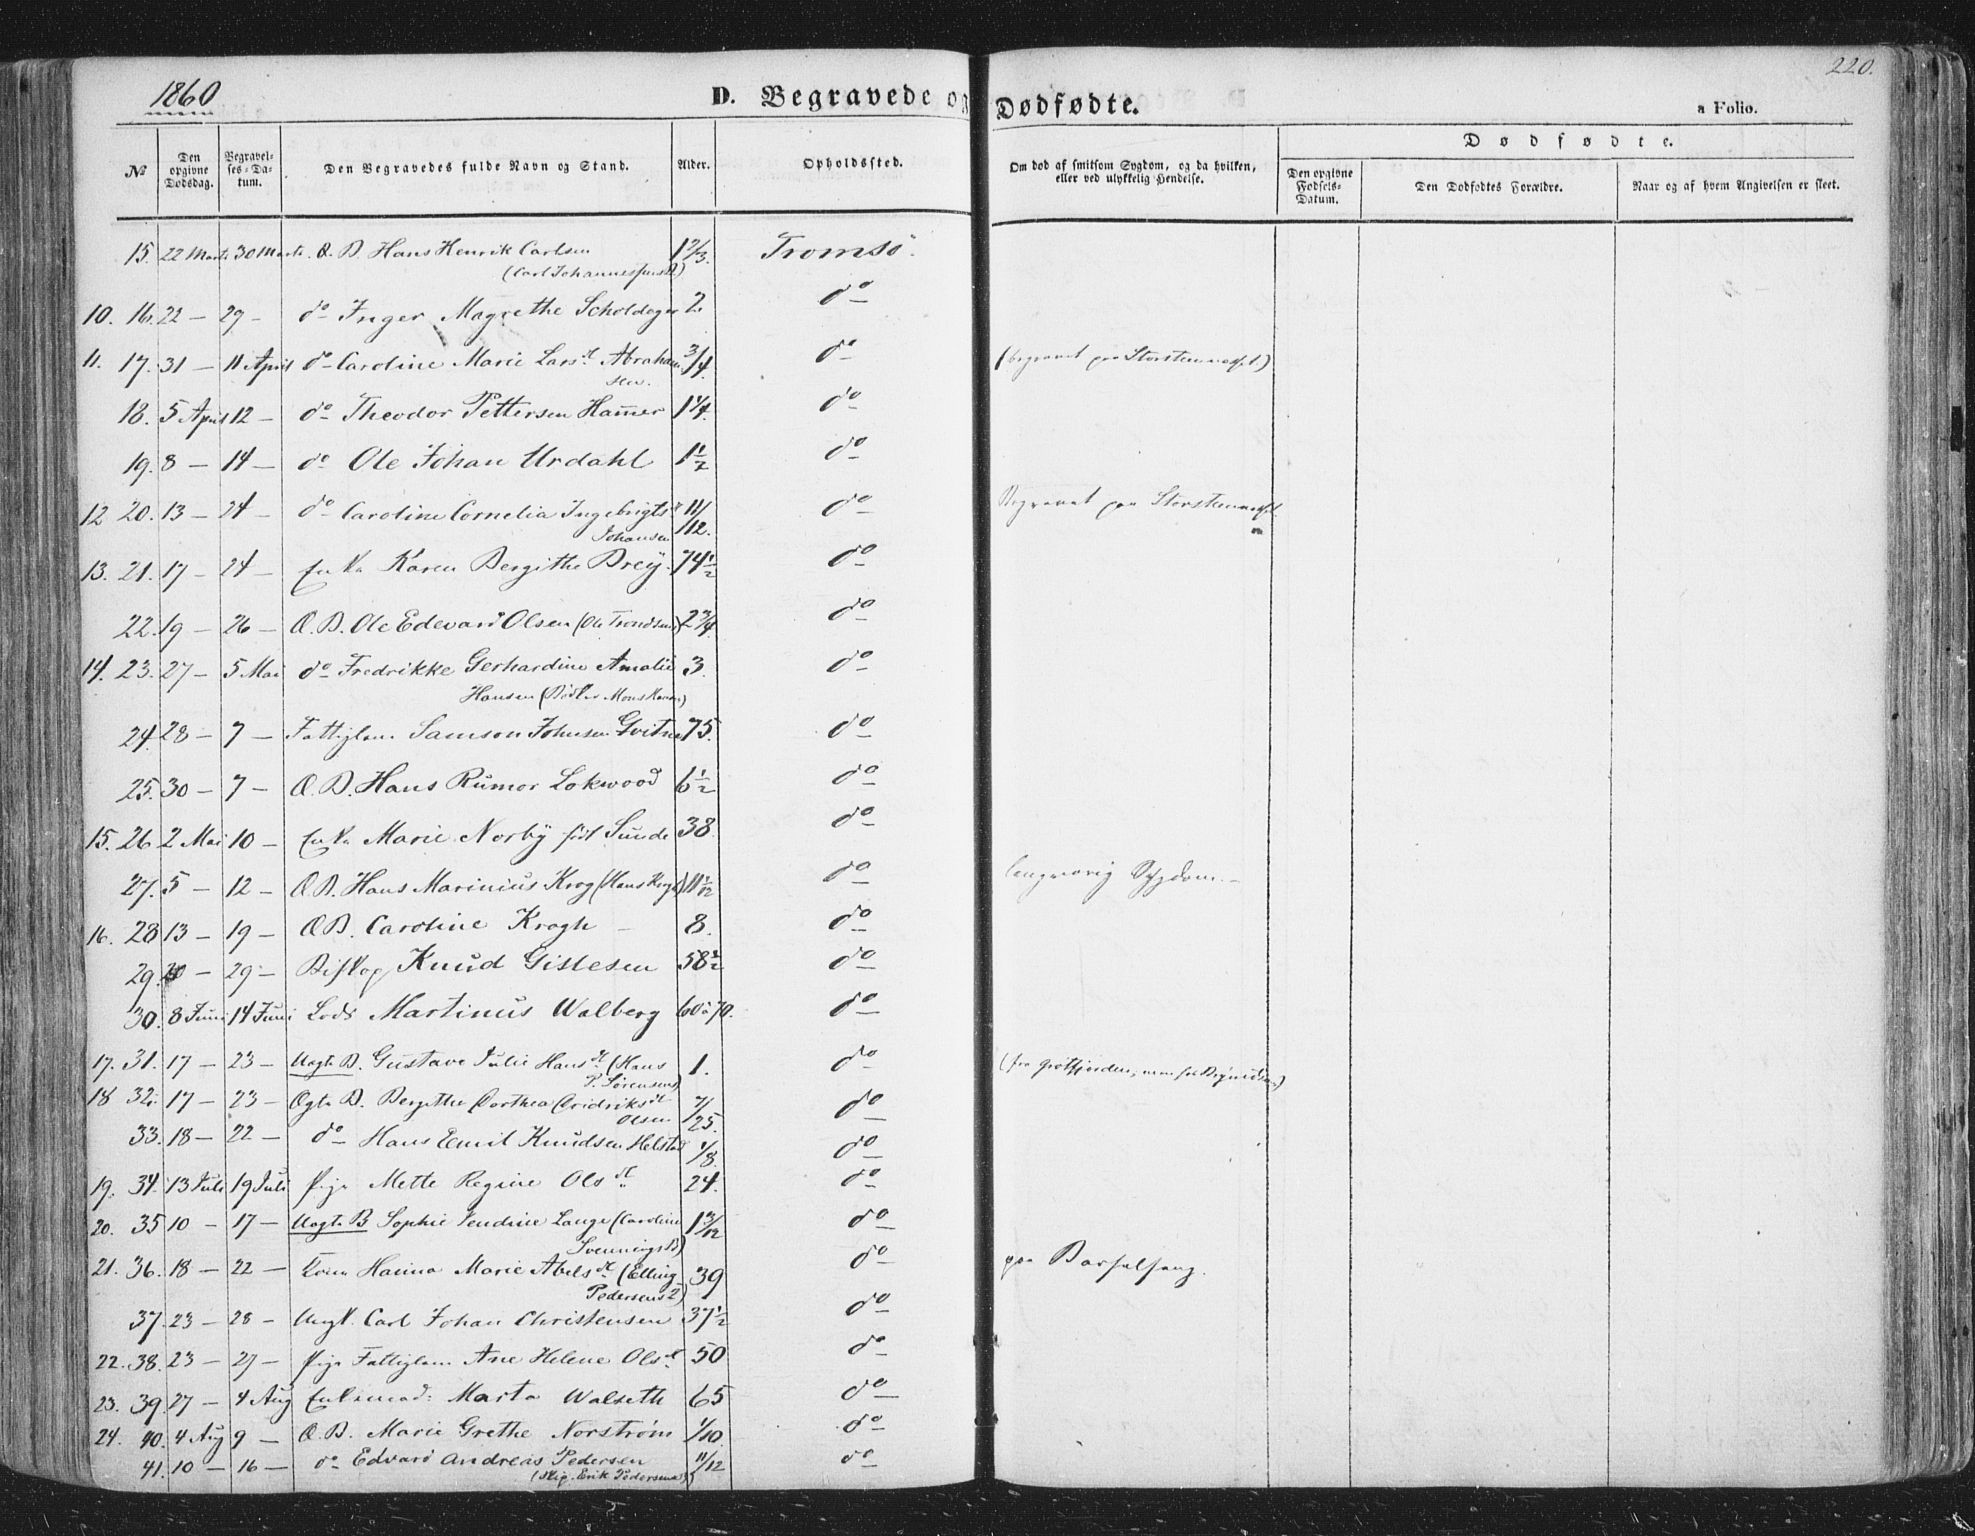 1860
D. Begravede og Dødfødte.
220.
a Folio.
No
Den opgivne Dødsdag.
Begravelses-Datum.
Den Begravedes fulde Navn og Stand.
Alder.
Opholdssted.
Om død af smitsom Sygdom, og da hvilken, eller ved ulykkelig Hendelse.
Dødfødte.
Den opgivne Fødsels-Datum.
Den Dødfødtes Forældre.
Naar og af hvem Angivelsen er skeet.
15. 22 Marts 30 Marts. Æ. B. Hans Henrik Carlsen 1 2/3. Tromsø.
(Carl Johannessens B)
10. 16. 22 — 29 — do Inger Magrethe Scholdager 2. do
11. 17. 31 — 11 April do Caroline Marie Larsdt Abraham 3/4. do (begravet paa Storstennæsset)
sen.
18. 5 April 12 — do Theodor Pettersen Hamer 1 1/4. do
19. 8 — 14 — do Ole Johan Urdahl 1 1/2 do
12 20. 13 — 24 — do Caroline Cornelia Ingebrigtsdt 11/12. do Begravet paa Storstennæsset
Johansen
13. 21. 17 — 24 — Enke Karen Bergithe Brey. 74 1/2 do
22. 19 — 26 — Æ. B. Ole Edevard Olsen (Ole Trondsens) 2 3/4 do
14. 23. 27 — 5 Mai do Fredrikke Gerhardine Amalie 3. do
Hansen (Bødker Mons Hansen)
24. 28 — 7 — Fattiglem Samson Johnsen 75. do
25. 30 — 7 — Æ. B. Hans Rumor Lokwood 6 1/2 do
15. 26 2 Mai 10 — Enke Marie Norby født Sunde 38. do
27. 5 — 12 — Æ. B. Hans Marinius Krog (Hans Kroghs) 11 1/12 do langvarig Sygdom. —
16. 28 13 — 19 — Æ B. Caroline Krogh — 8. do
29. 20 — 29 — Biskop Knud Gislesen 58 1/2 do
30. 8 Juni 14 Juni Lods Martinus Walberg 60 à 70. do
17. 31. 17 — 23 — Uægte B. Gustava Julie Hansdt (Hans 1. do (fra Grøtfjorden,
P. Sørensens)
18 32. 17 — 23 — Ægte B. Bergithe Dorthea Dridriksdt 7/25. do
Olsen
33. 18 — 22 — do Hans Eemil Knudsen Helstad 1/8. do
19. 34. 13 Juli 19 Juli Pige Mette Regine Olsdt 24. do
20. 35 10 — 17 — Uægte B Sophie Lange (Caroline 1 3/12 do
Svennings B)
21. 36. 18 — 22 — Kone Hanna Marie Abelsdt (Elling 39 do paa Barselseng.
Pedersens)
37. 23 — 28 — Ungk. Carl Johan Christensen 37 1/2 do
22. 38. 23 — 27 — Pige Fattiglem Ane Helene Olsdt 50 do
23. 39. 27 — 4 Aug Enkemad: Marta Walseth 65 do
24. 40. 4 Aug 9 — Æ. B. Marie Grethe Norstrøm 1/10. do
41. 10 — 16 — do Edvard Andreas Pedersen 11/12 do
(Skip. Erik Pedersens)